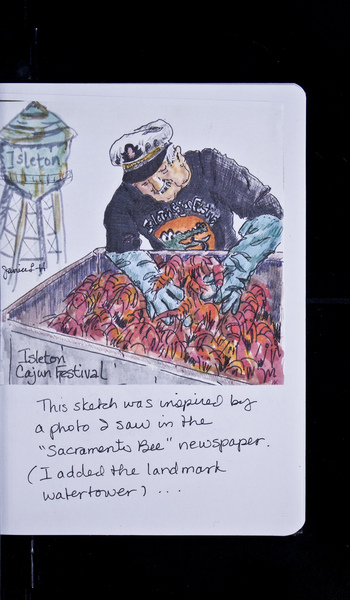 Isleton
Isleton
Cajun Festival
This sketch was inspired by
a photo I saw in the
"Sacramento Bee" newspaper.
(I added the landmark
watertower) ...